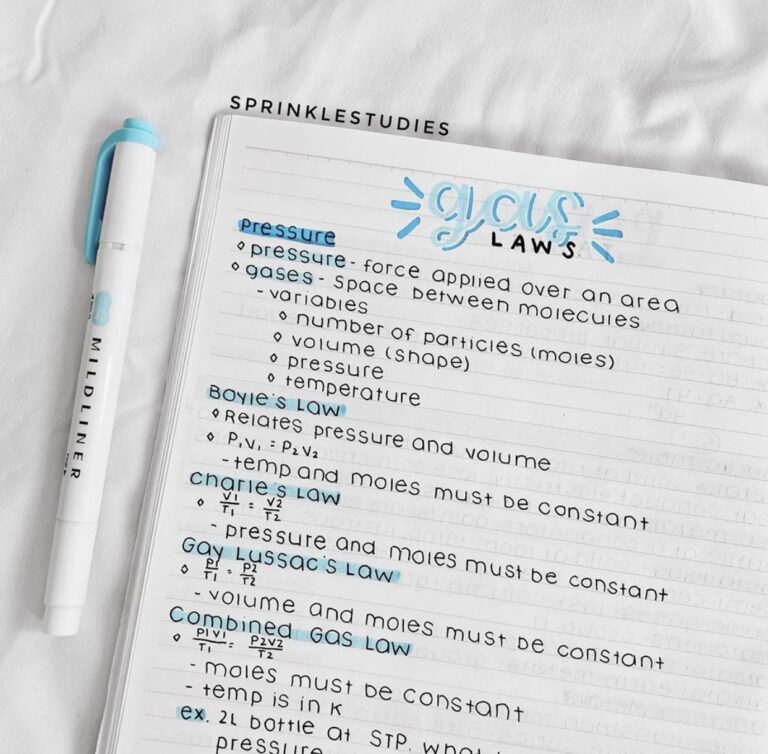 SPRINKLESTUDIES
gas
LAWS
pressure
◊ pressure - force applied over an area
◊ gases - space between molecules
- variables
◊ number of particles (moles)
◊ volume (shape)
◊ pressure
◊ temperature
Boyle's Law
◊ Relates pressure and volume
◊ P₁V₁ = P₂V₂
- temp and moles must be constant
Charle's Law
◊ V1/T1 = V2/T2
- pressure and moles must be constant
Gay Lussac's Law
◊ P1/T1 = P2/T2
- volume and moles must be constant
Combined Gas Law
◊ P1V1/T1 = P2V2/T2
- moles must be constant
- temp is in K
ex. 2L bottle at STP. what
pressure
MILDLINER